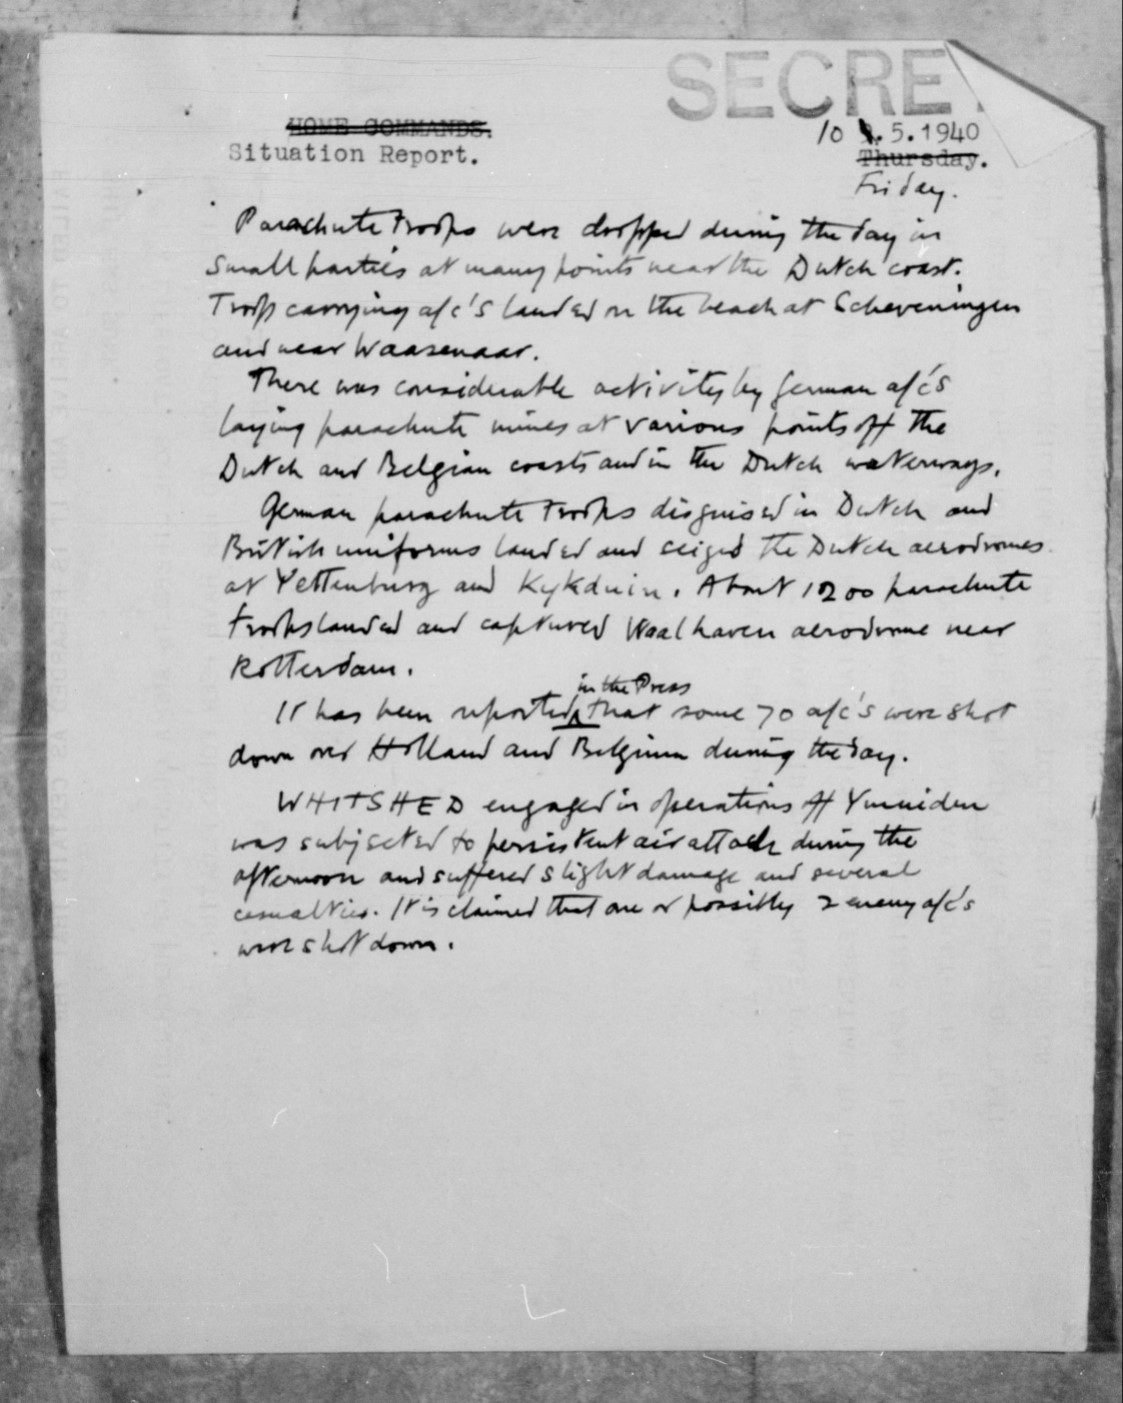 SECRE
HOME COMMANDS.
10 9.5.1940
Situation Report.
Thursday.
Friday.
Parachute troops were dropped during the day in
small parties at many points near the Dutch coast.
Troop carrying a/c's landed on the beach at Scheveningen
and near Waasenaar.
There was considerable activity by German a/c's
laying parachute mines at various points off the
Dutch and Belgian coasts and in the Dutch waterways.
German parachute troops disguised in Dutch and
British uniforms landed and seized the Dutch aerodromes
at Yettenburg and Kykduin. About 1200 parachute
troops landed and captured Waalhaven aerodrome near
Rotterdam.
in the Press
It has been reported that some 70 a/c's were shot
down over Holland and Belgium during the day.
WHITSHED engaged in operations off Ymuiden
was subjected to persistent air attack during the
afternoon and suffered slight damage and several
casualties. It is claimed that one or possibly 2 enemy a/c's
were shot down.